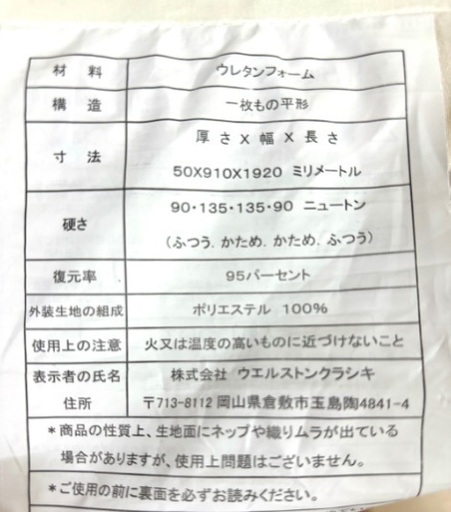 材料 ウレタンフォーム
構造 一枚もの平形
厚さX幅X長さ
寸法
50X910X1920 ミリメートル
90・135・135・90 ニュートン
硬さ
(ふつう. かため. かため. ふつう)
復元率 95パーセント
外装生地の組成 ポリエステル 100%
使用上の注意 火又は温度の高いものに近づけないこと
表示者の氏名 株式会社 ウエルストンクラシキ
住所 〒713-8112 岡山県倉敷市玉島陶4841-4
*商品の性質上、生地面にネップや織りムラが出ている
場合がありますが、使用上問題はございません。
*ご使用の前に裏面を必ずお読みください。